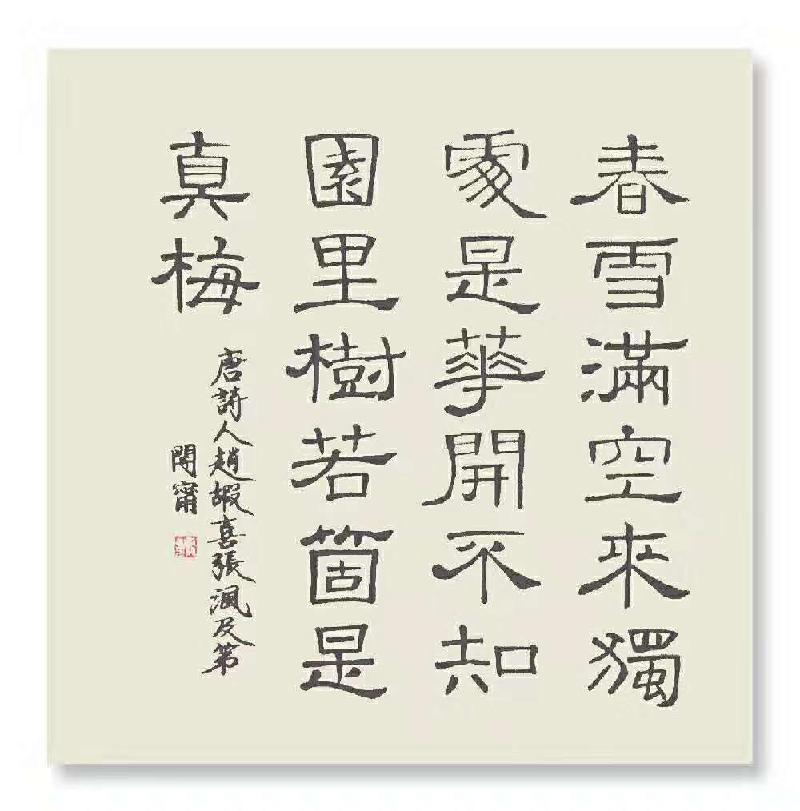 春雪滿空來獨
處是華開不知
園里樹若箇是
真梅
唐詩人趙嘏喜張渢及第
甯